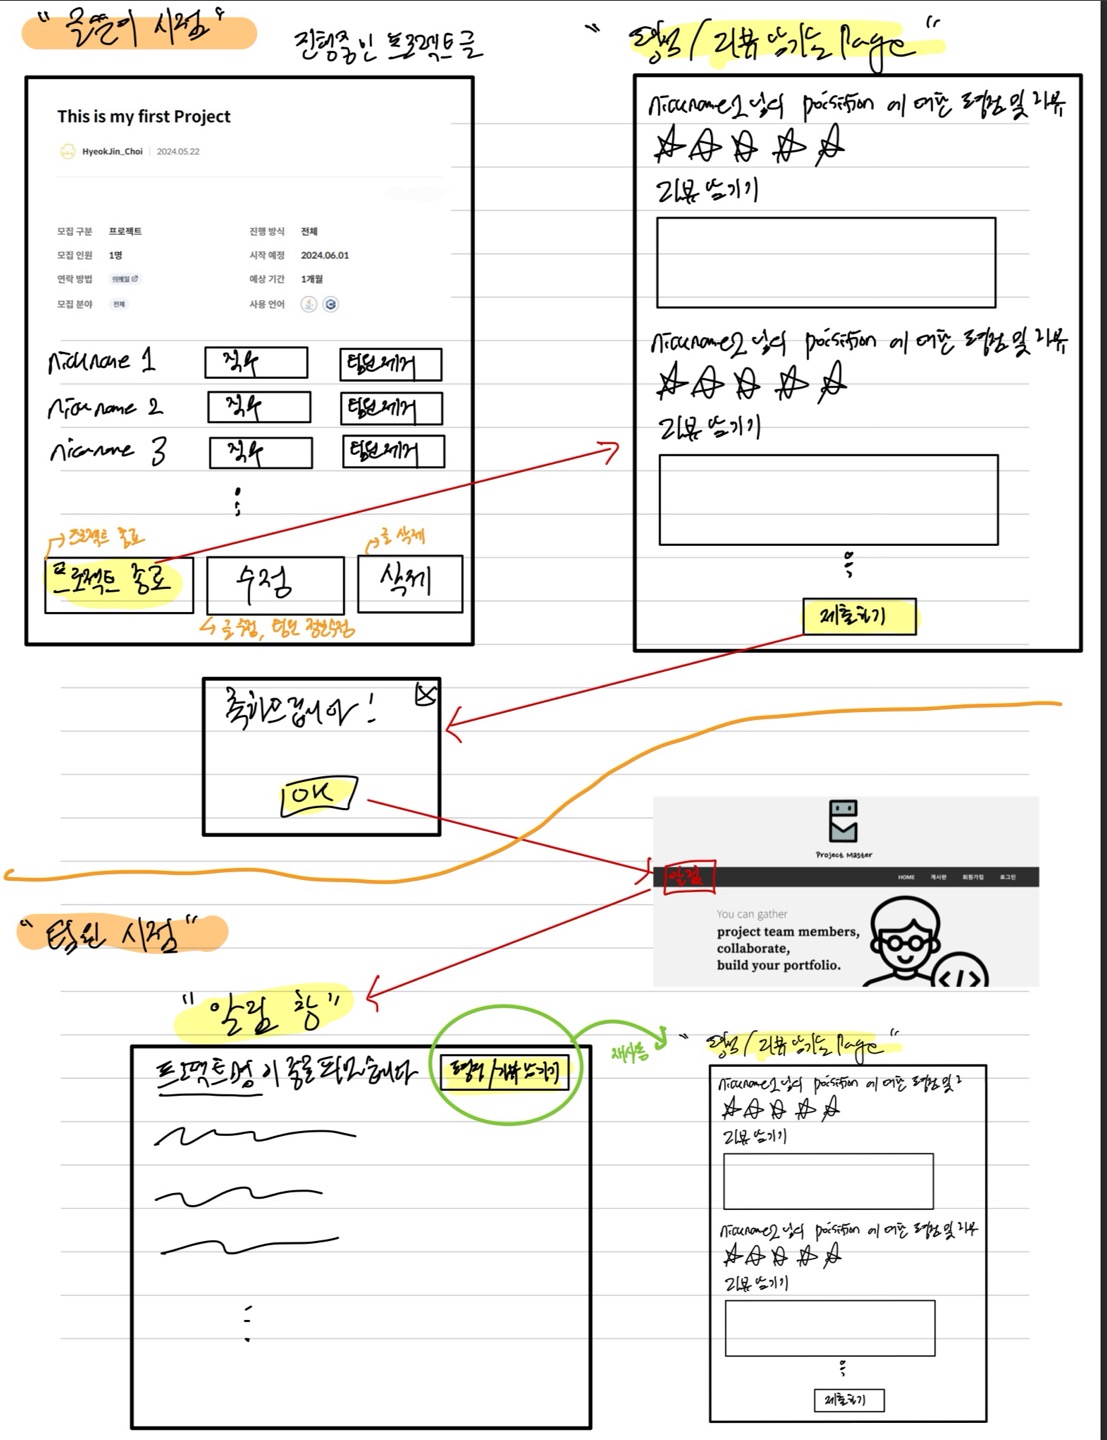 "글쓴이 시점"
진행중인 프로젝트 글
"평점/리뷰 남기는 Page"
This is my first Project
HyeokJin_Choi | 2024.05.22
모집 구분 프로젝트 진행 방식 전체
모집 인원 1명 시작 예정 2024.06.01
연락 방법 이메일 예상 기간 1개월
모집 분야 전체 사용 언어
nickname 1 직무 팀원제거
nickname 2 직무 팀원제거
nickname 3 직무 팀원제거
프로젝트 종료
글 삭제
프로젝트 종료 수정 삭제
글 수정, 팀원 정보수정
nickname1 님의 poisition 에 대한 평점 및 리뷰
리뷰 남기기
nickname2 님의 poisition 에 대한 평점 및 리뷰
리뷰 남기기
제출하기
축하드립니다!
OK
Project Master
알림
HOME 게시판 회원가입 로그인
You can gather
project team members,
collaborate,
build your portfolio.
"팀원 시점"
"알림 창"
프로젝트명이 종료 되었습니다 평점/리뷰 남기기
재사용
"평점/리뷰 남기는 Page"
nickname1 님의 poisition 에 대한 평점 및 리
리뷰 남기기
nickname2 님의 poisition 에 대한 평점 및 리뷰
리뷰 남기기
제출하기